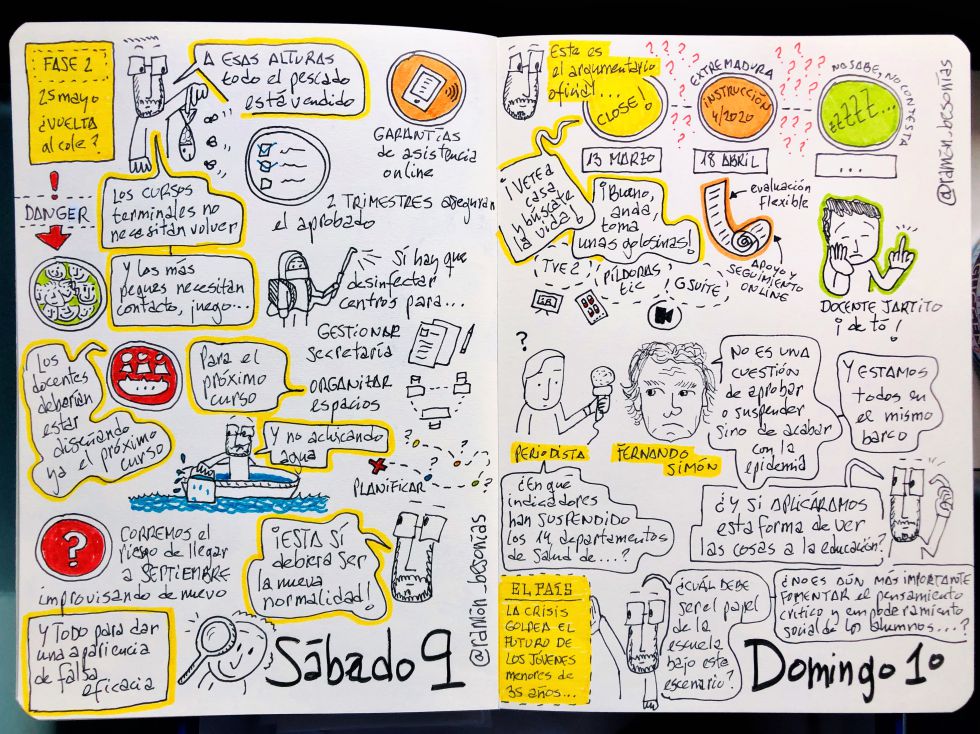 FASE 2
25 mayo
¿VUELTA
al cole?
A ESAS ALTURAS
todo el pescado
está vendido
GARANTÍAS
de asistencia
online
2 TRIMESTRES aseguran
el aprobado
LOS CURSOS
terminales no
necesitan volver
!
DANGER
Y los más
peques necesitan
contacto, juego...
SÍ hay que
desinfectar
centros para...
GESTIONAR
secretaría
ORGANIZAR
espacios
PLANIFICAR
Los
docentes
deberían
estar
diseñando
ya el próximo
curso
Para el
próximo
curso
Y no achicando
agua
?
CORREMOS el
riesgo de llegar
a SEPTIEMBRE
improvisando de nuevo
¡ESTA SÍ
debería ser
la nueva
normalidad!
Y TODO para dar
una apariencia
de falsa
eficacia
Sábado 9
@ramón_besonías
Este es
el argumentario
oficial...
CLOSE!
13 MARZO
EXTREMADURA
INSTRUCCIÓN
4/2020
18 ABRIL
NO SABE, NO CONTESTA
zzzzz...
...
@ramón_besonías
¡VETE A
CASA
y búscate
la vida!
¡Bueno,
anda,
toma
unas golosinas!
evaluación
flexible
APOYO y
SEGUIMIENTO
ONLINE
TVE 2
PÍLDORAS
tic
GSUITE
DOCENTE JARTITO
¡de tó!
?
PERIODISTA
FERNANDO
SIMÓN
NO ES UNA
CUESTIÓN
de aprobar
o suspender
sino de acabar
con la
epidemia
Y ESTAMOS
todos en
el mismo
barco
¿En qué
indicadores
han SUSPENDIDO
los 14 departamentos
de Salud de...?
¿Y SI APLICÁRAMOS
esta forma de ver
las cosas a la educación?
EL PAÍS
LA CRISIS
GOLPEA EL
FUTURO DE
LOS JÓVENES
menores de
35 años...
¿CUÁL DEBE
ser el papel
de la
escuela
bajo este
escenario?
¿NO ES AÚN MÁS IMPORTANTE
FOMENTAR el pensamiento
crítico y empoderamiento
social de los alumnos...?
Domingo 10